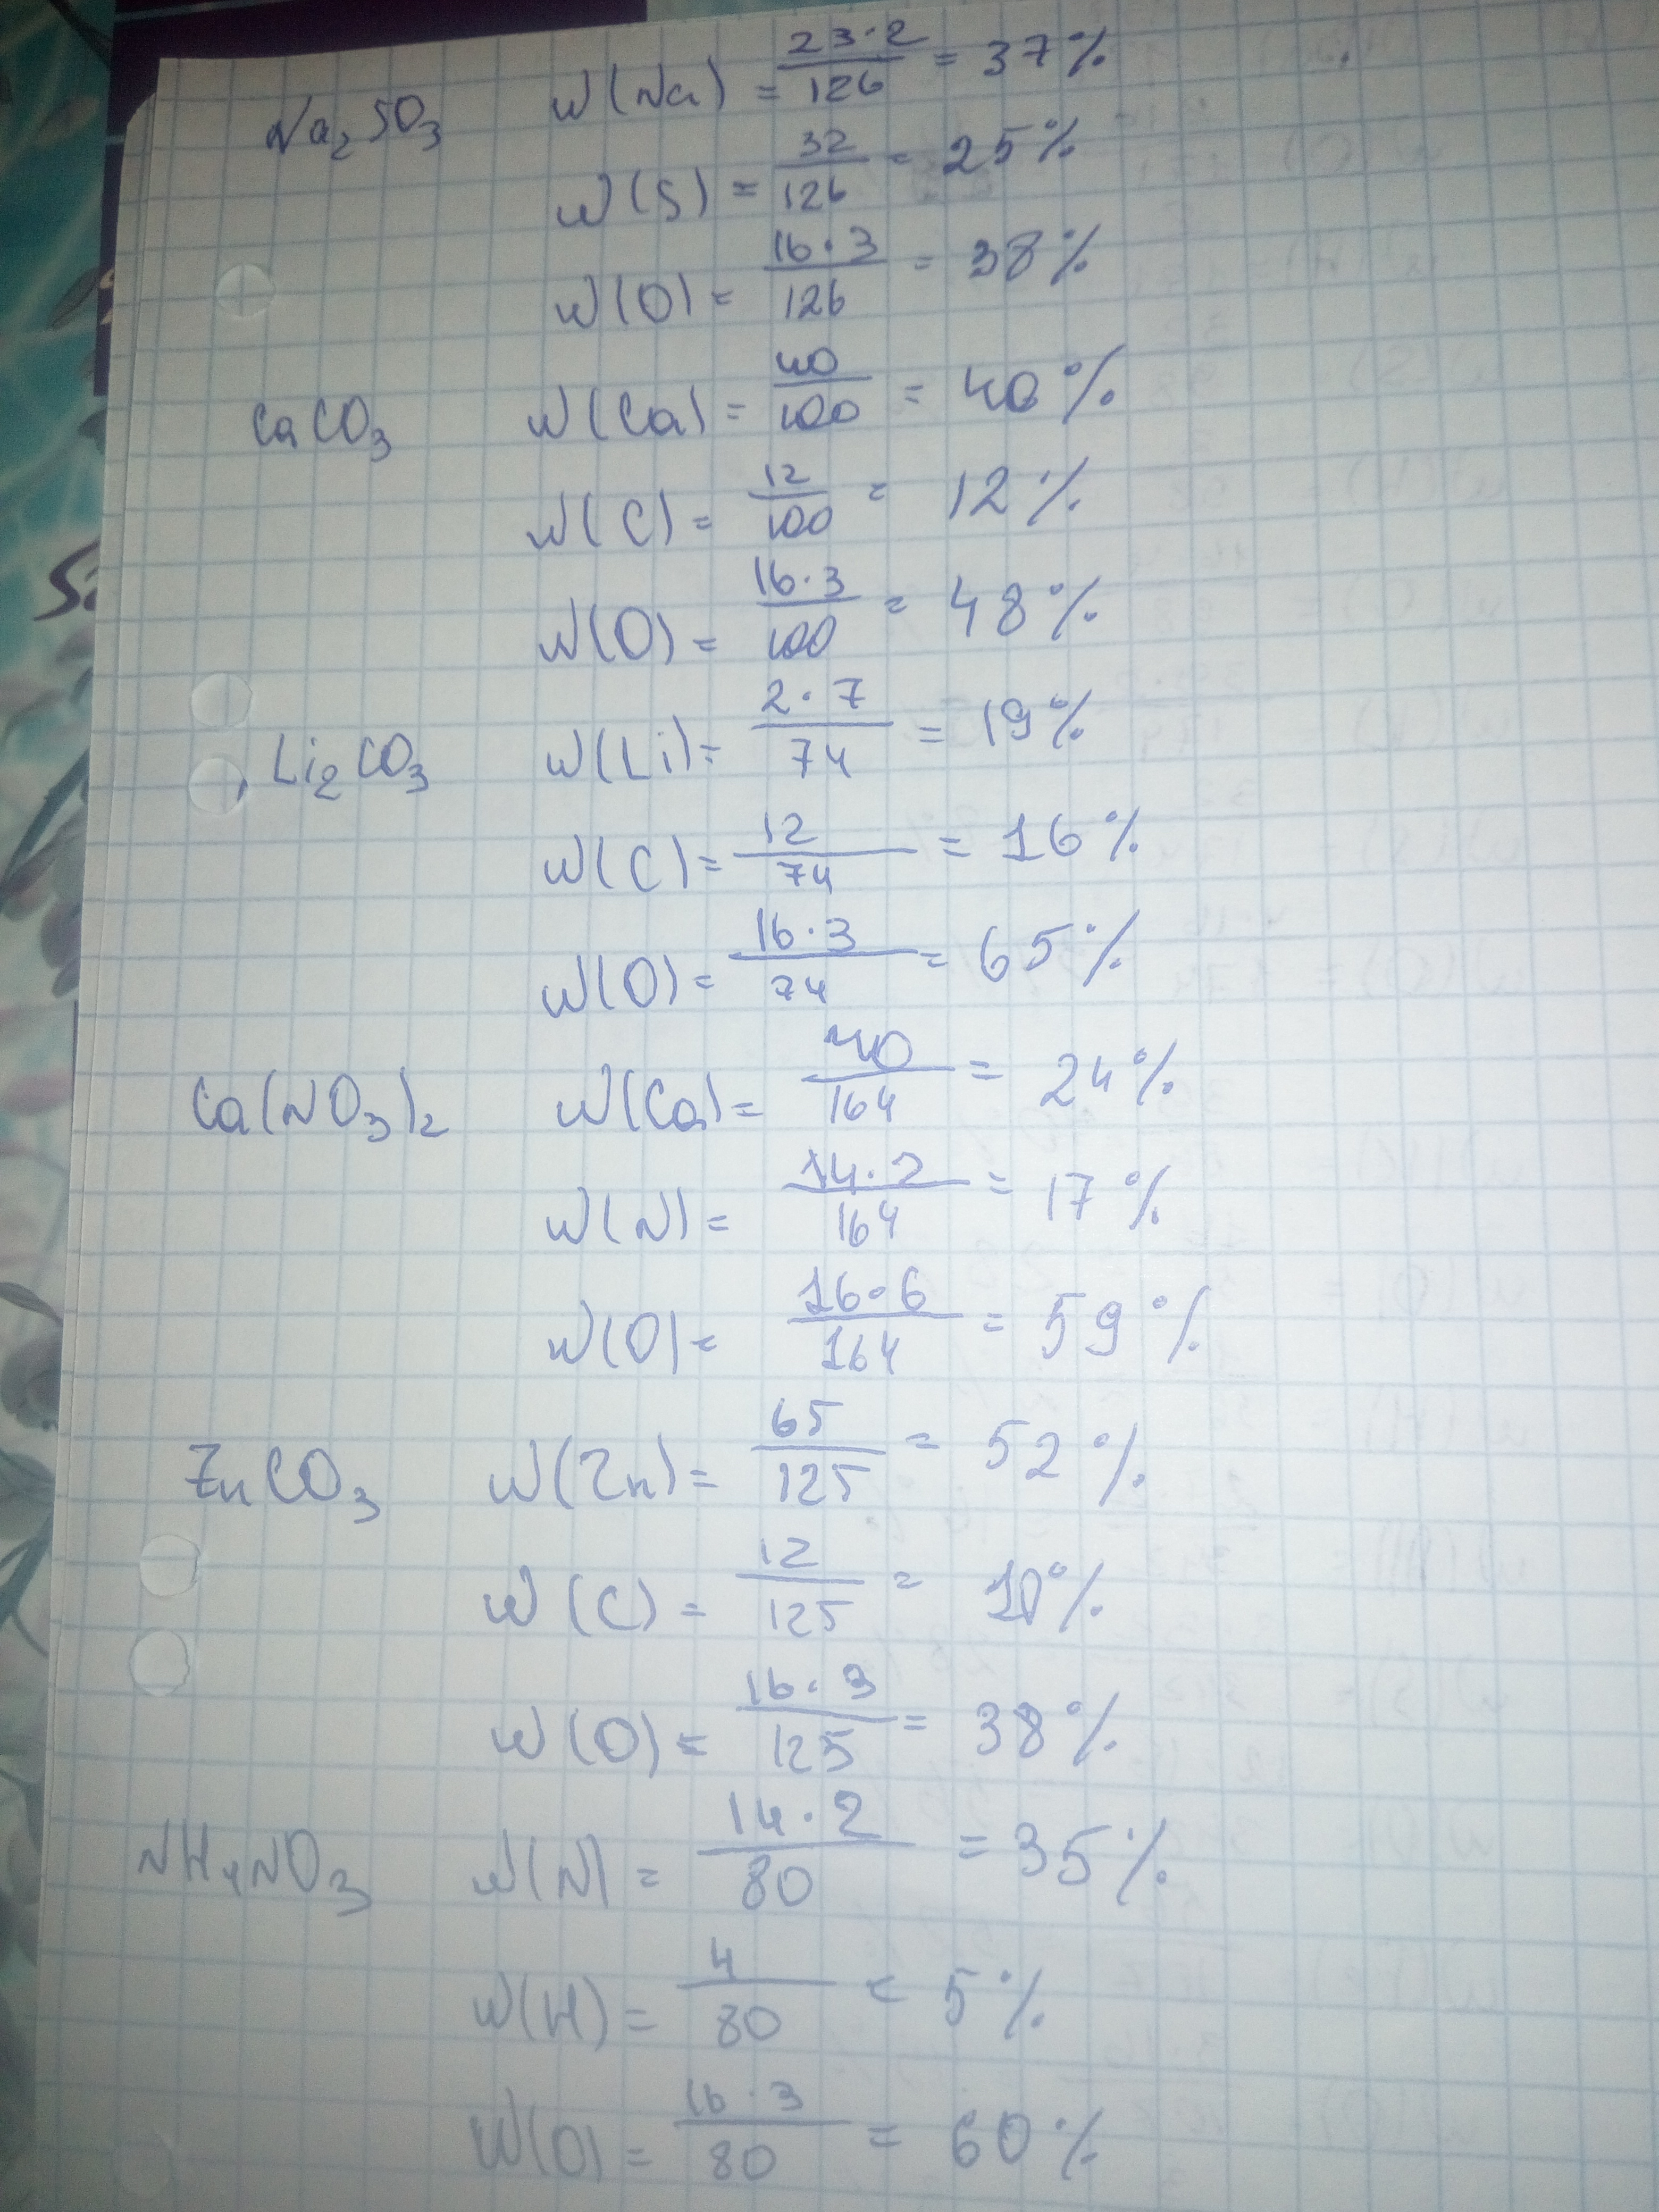 Na₂SO₃ W(Na) = 23·2/126 = 37%
W(S) = 32/126 = 25%
W(O) = 16·3/126 = 38%
CaCO₃ W(Ca) = 40/100 = 40%
W(C) = 12/100 = 12%
W(O) = 16·3/100 = 48%
Li₂CO₃ W(Li) = 2·7/74 = 19%
W(C) = 12/74 = 16%
W(O) = 16·3/74 = 65%
Ca(NO₃)₂ W(Ca) = 40/164 = 24%
W(N) = 14·2/164 = 17%
W(O) = 16·6/164 = 59%
ZnCO₃ W(Zn) = 65/125 = 52%
W(C) = 12/125 = 10%
W(O) = 16·3/125 = 38%
NH₄NO₃ W(N) = 14·2/80 = 35%
W(H) = 4/80 = 5%
W(O) = 16·3/80 = 60%